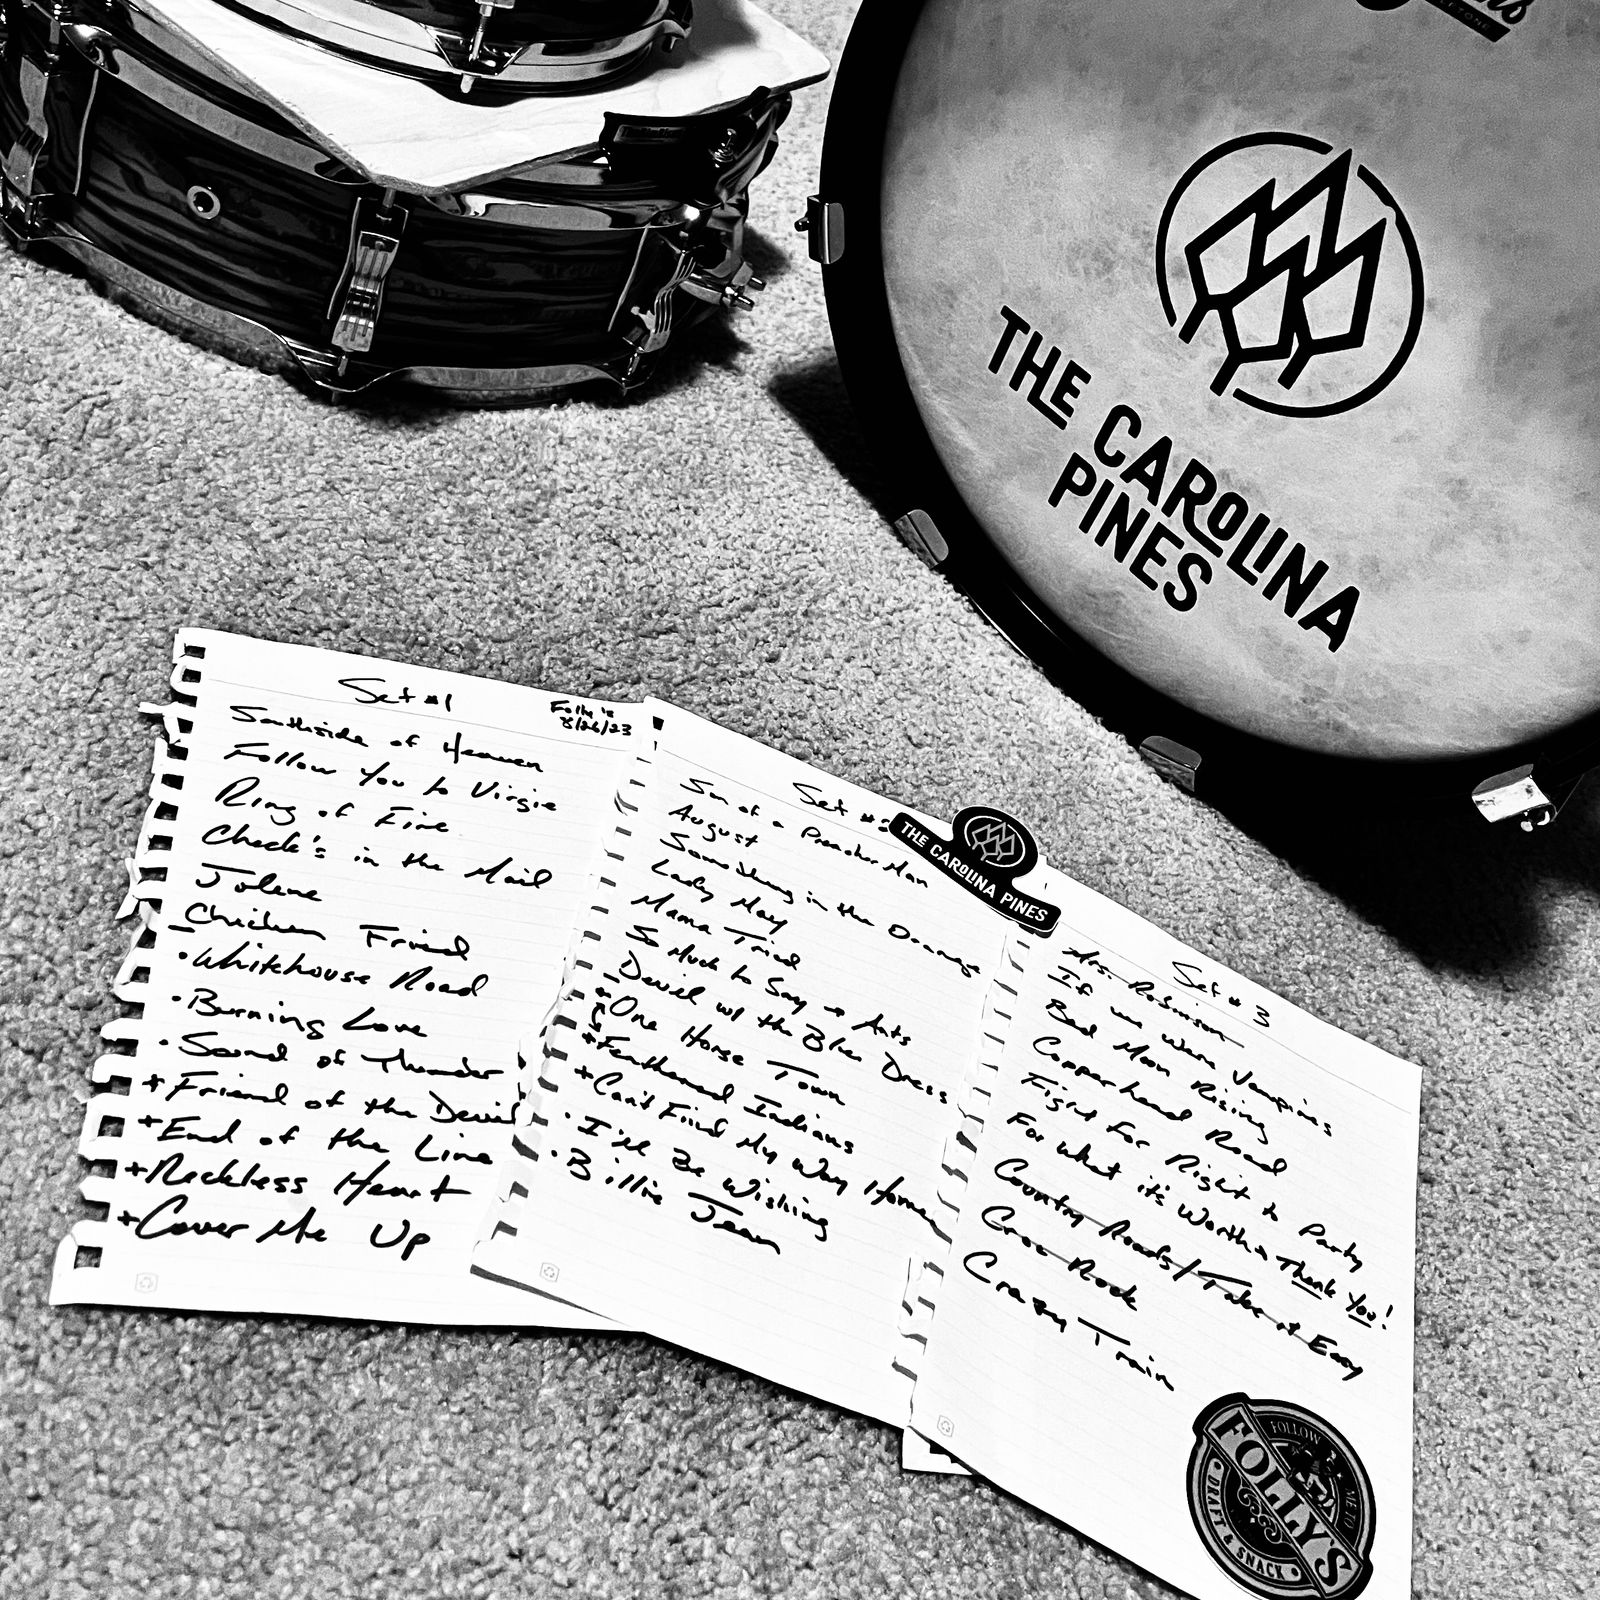 THE CAROLINA
PINES
Set #1
Folly's
8/26/23
Southside of Heaven
Follow You to Virgie
Ring of Fire
Check's in the Mail
Jolene
Chicken Fried
•Whitehouse Road
•Burning Love
•Sound of Thunder
+Friend of the Devil
+End of the Line
+Reckless Heart
+Cover Me Up
Set #2
Son of a Preacher Man
August
Something in the Orange
Lady May
Mama Tried
So Much to Say → Ants
Devil w/ the Blue Dress
+One Horse Town
+Feathered Indians
+Can't Find My Way Home
•I'll Be Wishing
•Billie Jean
THE CAROLINA PINES
Set #3
Mrs. Robinson
If we were Vampires
Bad Moon Rising
Copperhead Road
Fight for Right to Party
For what it's Worth
Thank You!
Country Roads/Take it Easy
Croc Rock
Crazy Train
FOLLOW ME TO
FOLLY'S
• DRAFT & SNACK •